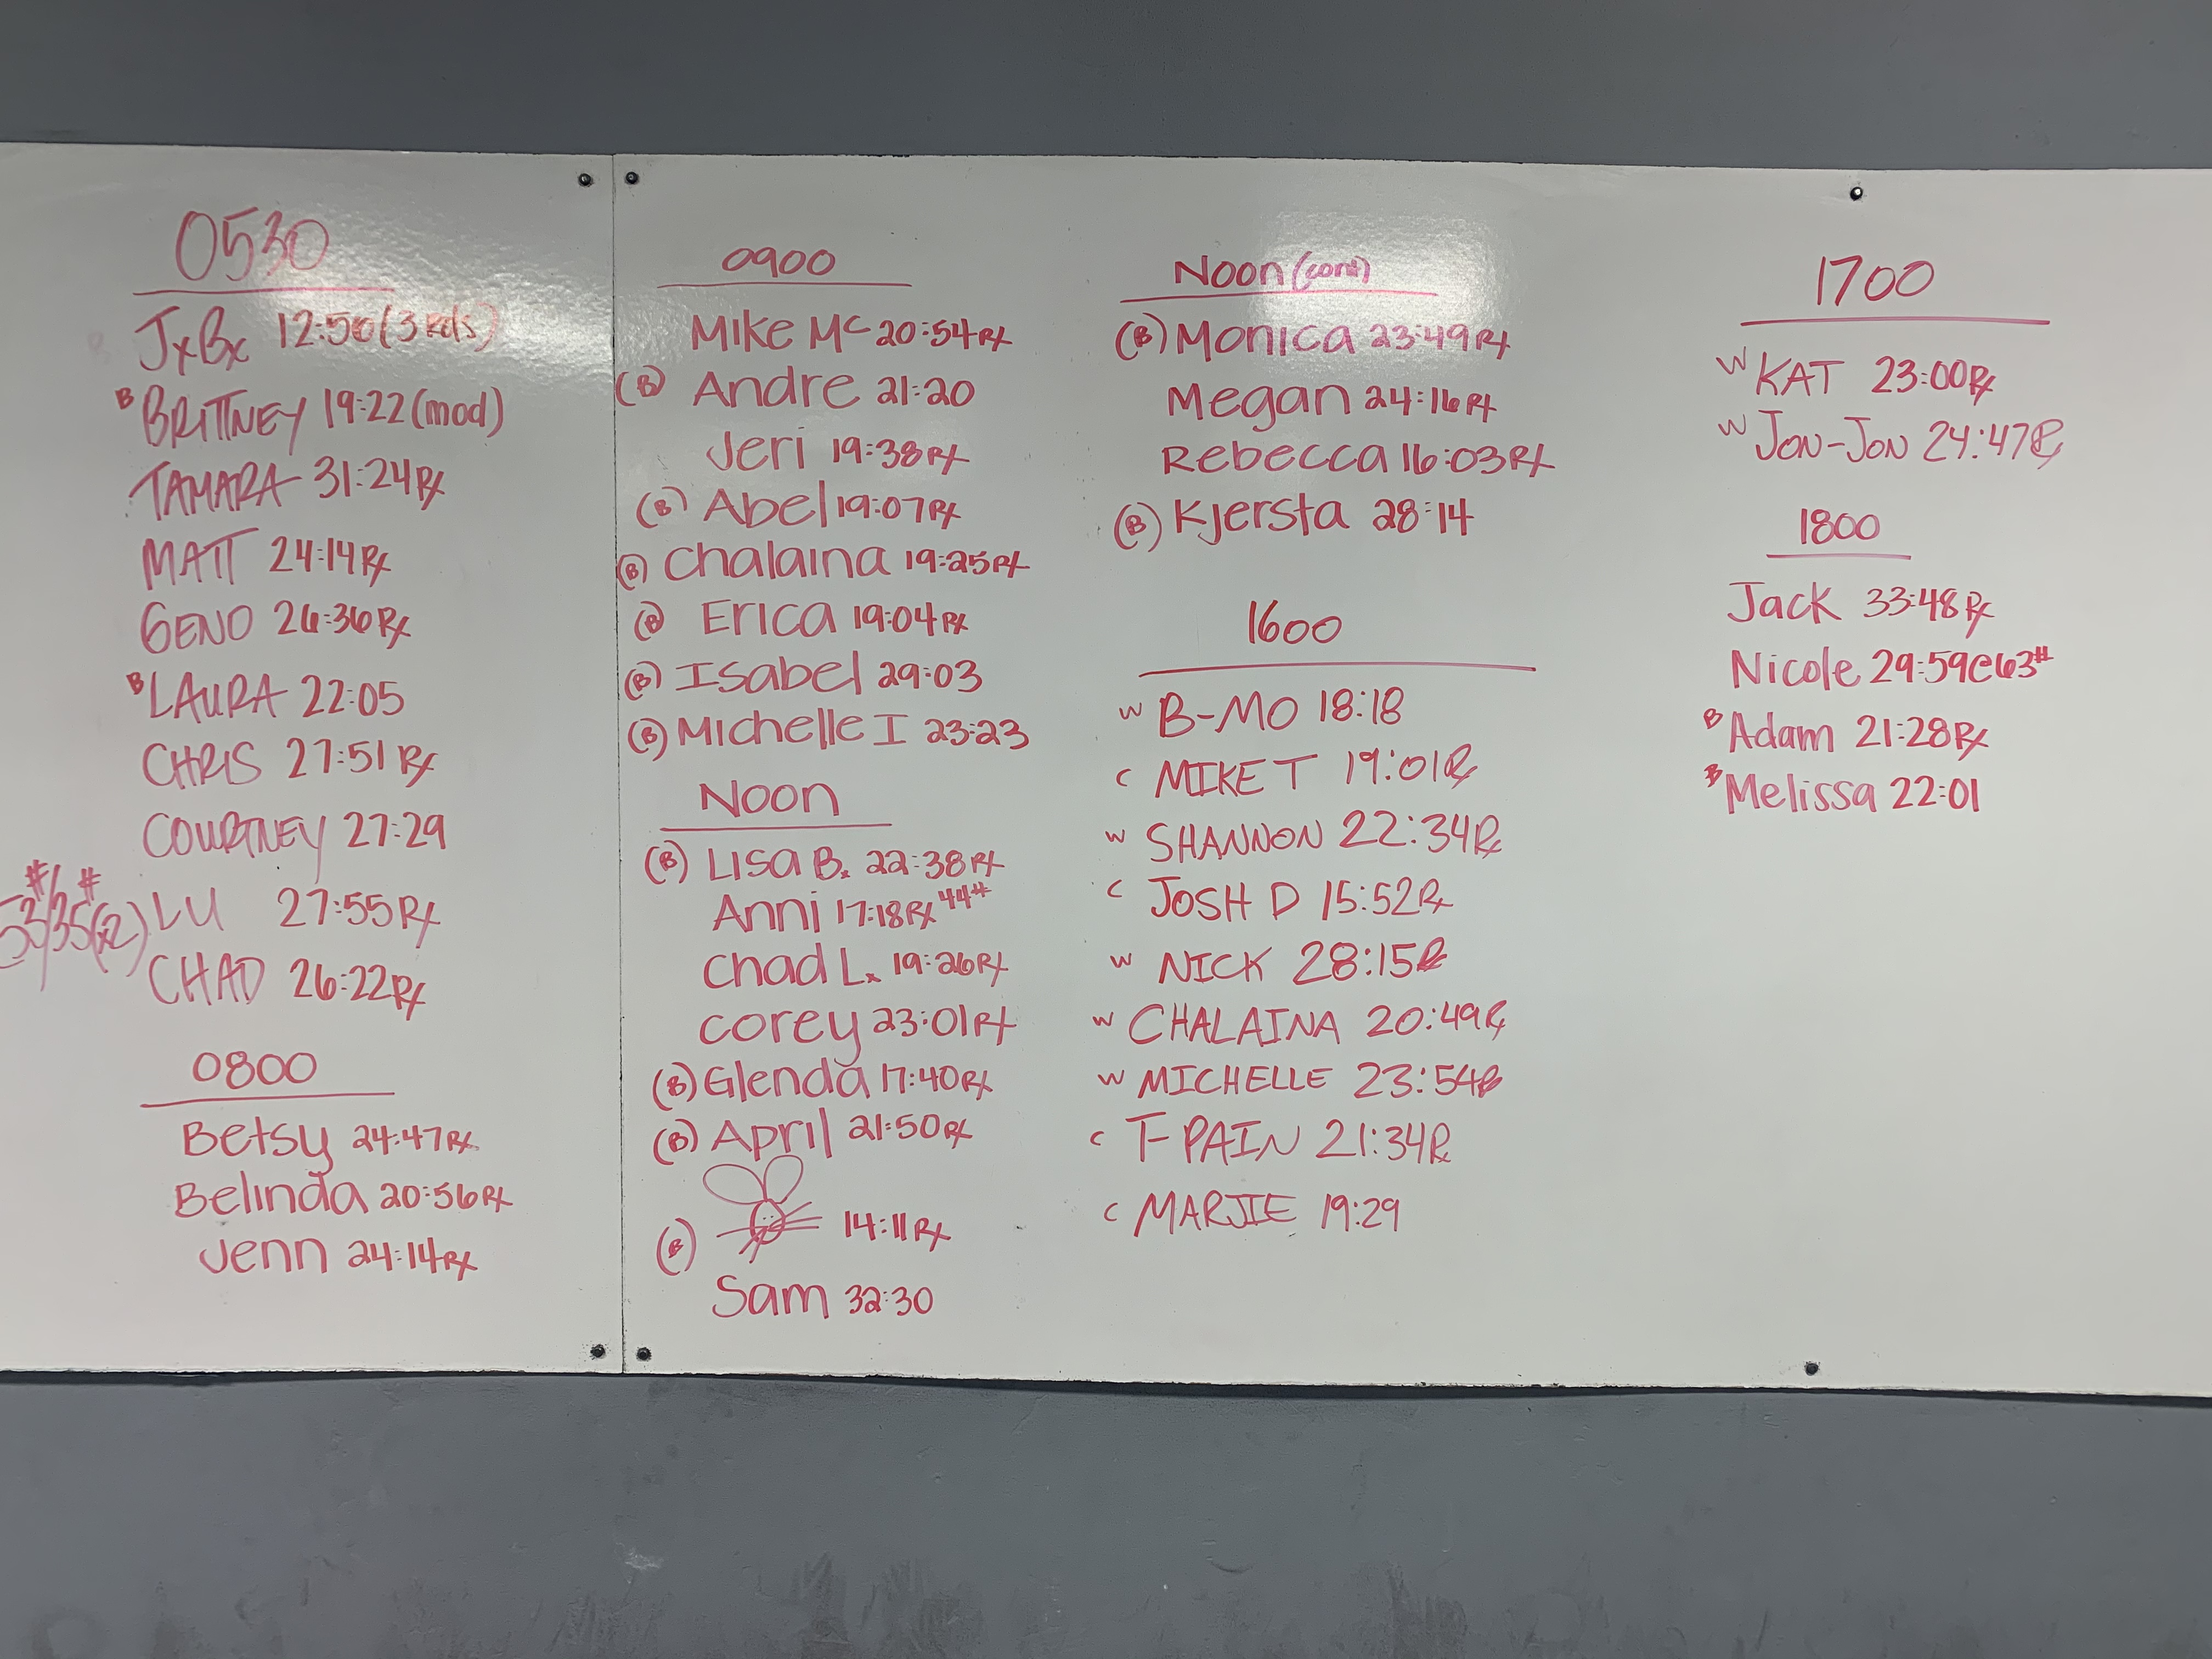 0530
JxBx 12:50 (3 rds)
B BRITTNEY 19:22 (mod)
TAMARA 31:24 Rx
MATT 24:14 Rx
GENO 26:36 Rx
B LAURA 22:05
CHRIS 27:51 Rx
COURTNEY 27:29
53#/35#(x2) LU 27:55 Rx
CHAD 26:22 Rx
0800
Betsy 24:47 Rx
Belinda 20:56 Rx
Jenn 24:14 Rx
0900
Mike Mc 20:54 Rx
(B) Andre 21:20
Jeri 19:38 Rx
(B) Abel 19:07 Rx
(B) Chalaina 19:25 Rx
(B) Erica 19:04 Rx
(B) Isabel 29:03
(B) Michelle I 23:23
Noon
(B) Lisa B. 22:38 Rx
Anni 17:18 Rx 44#
Chad L. 19:26 Rx
Corey 23:01 Rx
(B) Glenda 17:40 Rx
(B) April 21:50 Rx
(B) 14:11 Rx
Sam 32:30
Noon (cont)
(B) Monica 23:49 Rx
Megan 24:16 Rx
Rebecca 16:03 Rx
(B) Kjersta 28:14
1600
W B-MO 18:18
C MIKE T 19:01 Rx
W SHANNON 22:34 Rx
C JOSH D 15:52 Rx
W NICK 28:15 Rx
W CHALAINA 20:49 Rx
W MICHELLE 23:54 Rx
C T-PAIN 21:34 Rx
C MARJIE 19:29
1700
W KAT 23:00 Rx
W JON-JON 24:47 Rx
1800
Jack 33:48 Rx
Nicole 29:59 @ 63#
B Adam 21:28 Rx
B Melissa 22:01